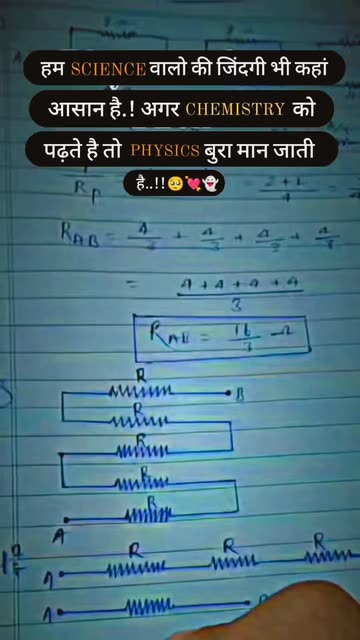 हम SCIENCE वालो की जिंदगी भी कहां
आसान है.! अगर CHEMISTRY को
पढ़ते है तो PHYSICS बुरा मान जाती
है..!!🥺💘👻
R_P = 2+1
R_AB = 4/3 + 4/3 + 4/3 + 4/3
= 4+4+4+4 / 3
R_AB = 16/3 Ω
R
B
R
R
R
R
A
A R R R
A